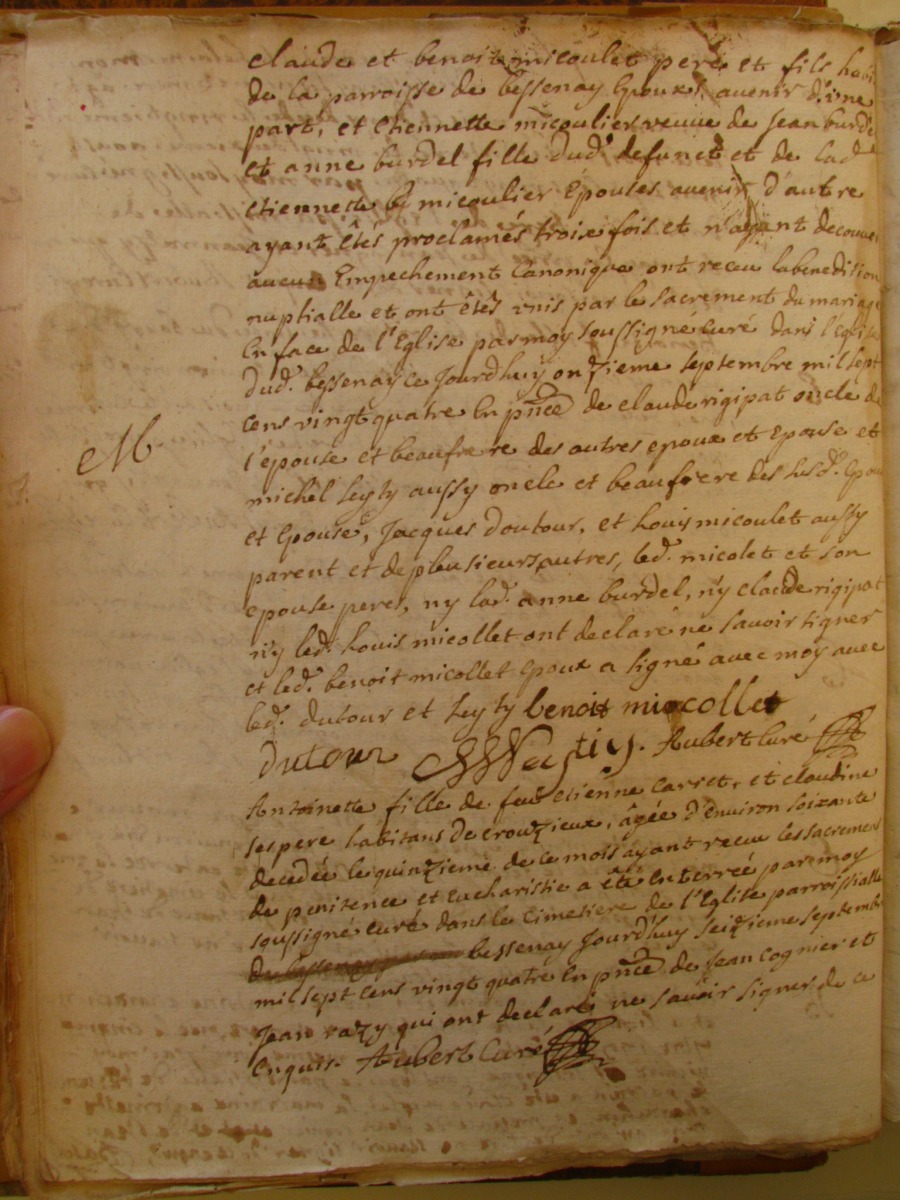 claude et benoit micoulet pere et fils habi
de la parroisse de bessenay Epoux avenir d'vne
part, et etiennette micoulier veuve de Jean burdel
et anne burdel fille dud. defunct et de lad.
etiennette micoulier Epouses avenir d'autre
ayant êtés proclamés trois fois et n'ayant decouver
aucun Empechement Canonique ont receu la benediction
nuptialle et ont êtés vnis par le sacrement du mariage
En face de l'Eglise par moy soussigné curé dans l'Eglise
dud. bessenay ce Jourdhuy onzieme septembre mil sept
cens vingt quatre En pnce de claude rigipat oncle de
l'epouse et beaufrere des autres epoux et Epouse et
M
michel leyty aussy oncle et beaufrere des susd. Epou
et Epouse, Jacques doutour, et Louis micoulet aussy
parent et de plusieurs autres, led. micolet et son
epouse peres, ny lad. anne burdel, ny claude rigipat
ny led. Louis micollet ont declaré ne savoir signer
et led. benoit micollet Epoux a signé avec moy avec
led. dutour et leyty benoit micollet
Dutour Aubert Curé
Antoinette fille de feu etienne Carret, et claudine
ses pere habitans de crouzieux, âgée d'Environ soixante
decedée le quinzieme de ce mois ayant receu les sacremens
de penitence et eucharistie a êté Enterrée par moy
soussigné curé dans le Cimetiere de l'Eglise parroissialle
bessenay Jourd'huy seizieme septembr
mil sept cens vingt quatre En pnce de Jean Cognier et
Jean razy qui ont declaré ne savoir signer de ce
Enquis. Aubert Curé